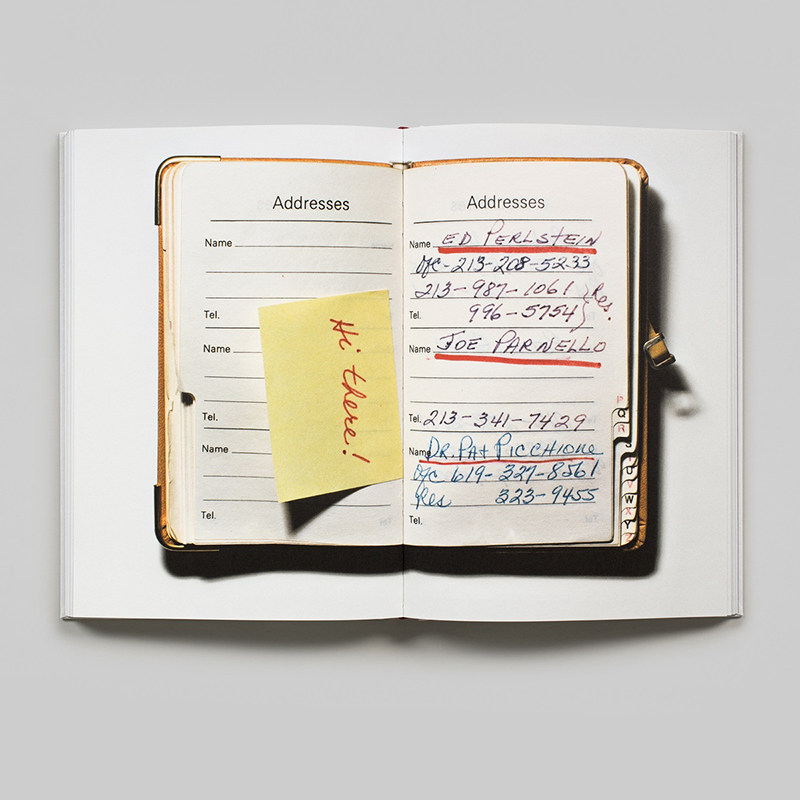 Addresses
Name
Tel.
Name
Tel.
Name
Tel.
Hi there!
Addresses
Name ED PERLSTEIN
Ofc-213-208-5233
213-987-1061 } Res.
Tel. 996-5754
Name JOE PARNELLO
Tel. 213-341-7429
Name DR. PAt PICCHIONE
Ofc 619-327-8561
Res 323-9455
Tel.
P
Q
R
W
X
Y